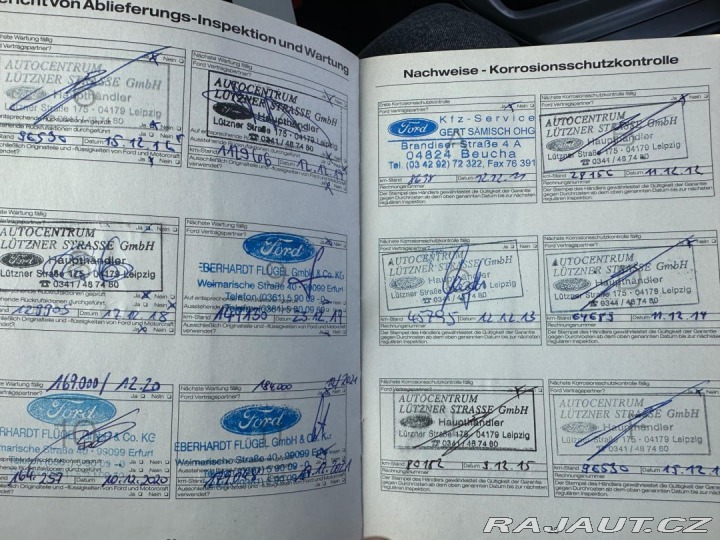 richt von Ablieferungs-Inspektion und Wartung
Nächste Wartung fällig
Ford Vertragspartner?
Ja Nein
AUTOCENTRUM
LÜTZNER STRASSE GmbH
Haupthändler
Lützner Straße 175 - 04179 Leipzig
0341 / 48 74 80
96550
15.12.16
Nächste Wartung fällig
Ford Vertragspartner?
Ja Nein
AUTOCENTRUM
LÜTZNER STRASSE GmbH
Haupthändler
Lützner Straße 175 - 04179 Leipzig
0341 / 48 74 80
Ausschließlich Originalteile und -flüssigkeiten von Ford und Motorcraft
verwendet?
AUTOCENTRUM
LÜTZNER STRASSE GmbH
Ford
Haupthändler
Lützner Straße 175 - 04179 Leipzig
0341 / 48 74 80
12.12.18
Nächste Wartung fällig
Ford Vertragspartner?
Ja Nein
Ford
EBERHARDT FLÜGEL GmbH & Co. KG
Weimarische Straße 40 - 99099 Erfurt
Telefon (0361) 5 90 09
km-Stand 147150 Datum
Ausschließlich Originalteile und -flüssigkeiten von Ford und Motorcraft
verwendet?
169.000 / 12.20
Nächste Wartung fällig
Ford Vertragspartner?
Ja Nein
Ford
RHARDT FLÜGEL GmbH & Co. KG
imarische Straße 40 - 99099 Erfurt
164.259 Datum 10.12.2020
Ausschließlich Originalteile und -flüssigkeiten von Ford und Motorcraft
verwendet?
184.000
Nächste Wartung fällig
Ford Vertragspartner?
Ja Nein
Ford
EBERHARDT FLÜGEL GmbH & Co. KG
Weimarische Straße 40 - 99099 Erfurt
Ausschließlich Originalteile und -flüssigkeiten von Ford und Motorcraft
verwendet?
Nachweise - Korrosionsschutzkontrolle
Erste Korrosionsschutzkontrolle
Ford Vertragspartner?
Ja Nein
Kfz-Service
Ford GERT SÄMISCH OHG
Brandiser Straße 4 A
04824 Beucha
Tel. (03 42 92) 72 322, Fax 76 391
km-Stand Datum 12.12.11
Rechnungsnummer
Der Stempel des Händlers gewährleistet die Gültigkeit der Garantie
gegen Durchrosten ab dem oben genannten Datum bis zur nächsten
regulären Inspektion.
Nächste Korrosionsschutzkontrolle fällig
Ford Vertragspartner?
Ja Nein
AUTOCENTRUM
LÜTZNER STRASSE GmbH
Haupthändler
Lützner Straße 175 - 04179 Leipzig
0341 / 48 74 80
km-Stand 28156 Datum 11.12.12
Rechnungsnummer
Der Stempel des Händlers gewährleistet die Gültigkeit der Garantie
gegen Durchrosten ab dem oben genannten Datum bis zur nächsten
regulären Inspektion.
Nächste Korrosionsschutzkontrolle fällig
Ford Vertragspartner?
Ja Nein
AUTOCENTRUM
LÜTZNER STRASSE GmbH
Haupthändler
Lützner Straße 175 - 04179 Leipzig
0341 / 48 74 80
km-Stand 45795 Datum 12.12.13
Rechnungsnummer
Der Stempel des Händlers gewährleistet die Gültigkeit der Garantie
gegen Durchrosten ab dem oben genannten Datum bis zur nächsten
regulären Inspektion.
Nächste Korrosionsschutzkontrolle fällig
Ford Vertragspartner?
Ja Nein
AUTOCENTRUM
LÜTZNER STRASSE GmbH
Haupthändler
Lützner Straße 175 - 04179 Leipzig
0341 / 48 74 80
km-Stand 64685 Datum 11.12.14
Rechnungsnummer
Der Stempel des Händlers gewährleistet die Gültigkeit der Garantie
gegen Durchrosten ab dem oben genannten Datum bis zur nächsten
regulären Inspektion.
Nächste Korrosionsschutzkontrolle fällig
Ford Vertragspartner?
Ja Nein
AUTOCENTRUM
LÜTZNER STRASSE GmbH
Haupthändler
Lützner Straße 175 - 04179 Leipzig
0341 / 48 74 80
km-Stand 80152 Datum 3.12.15
Rechnungsnummer
Der Stempel des Händlers gewährleistet die Gültigkeit der Garantie
gegen Durchrosten ab dem oben genannten Datum bis zur nächsten
regulären Inspektion.
Nächste Korrosionsschutzkontrolle fällig
Ford Vertragspartner?
Ja Nein
AUTOCENTRUM
LÜTZNER STRASSE GmbH
Haupthändler
Lützner Straße 175 - 04179 Leipzig
0341 / 48 74 80
km-Stand 96550 Datum 15.12.1
Rechnungsnummer
Der Stempel des Händlers gewährleistet die Gültigkeit der Garantie
RAJAUT.CZ